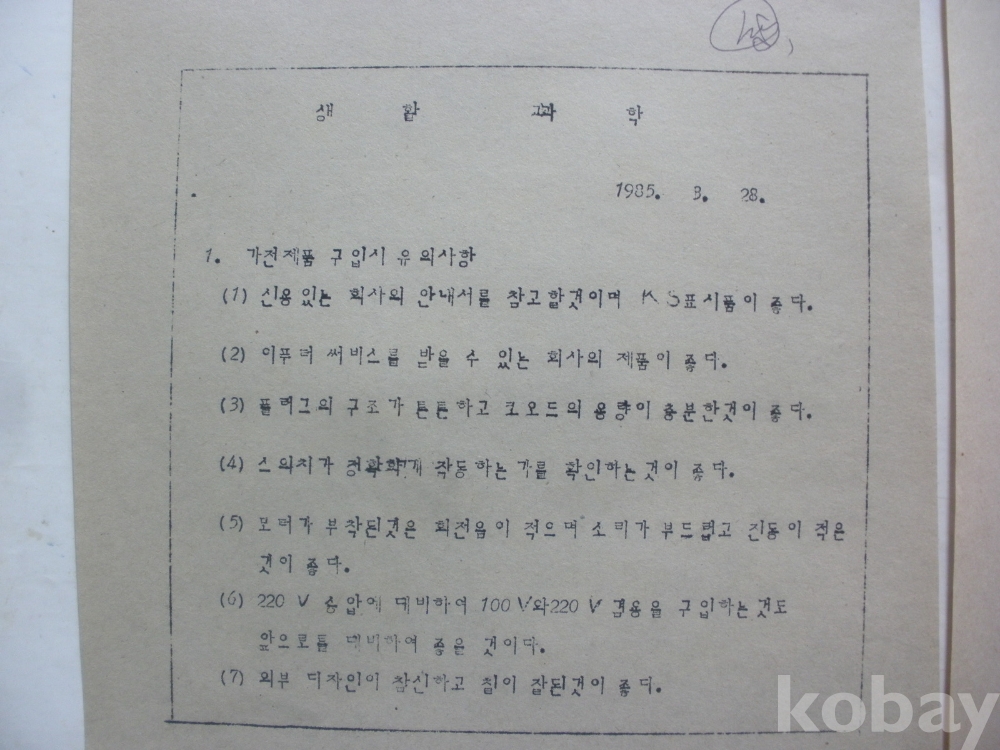 생 활 과 학
1985. 3. 28.
1. 가전제품 구입시 유의사항
(1) 신용있는 회사의 안내서를 참고할것이며 KS표시품이 좋다.
(2) 이푸터 써비스를 받을 수 있는 회사의 제품이 좋다.
(3) 플러그의 구조가 튼튼하고 코오드의 용량이 충분한것이 좋다.
(4) 스의치가 정확하게 작동하는가를 확인하는것이 좋다.
(5) 모터가 부착된것은 회전음이 적으며 소리가 부드럽고 진동이 적은
것이 좋다.
(6) 220 V 승압에 대비하여 100 V와 220 V 겸용을 구입하는것도
앞으로를 대비하여 좋을 것이다.
(7) 외부 디자인이 참신하고 칠이 잘된것이 좋다.
kobay